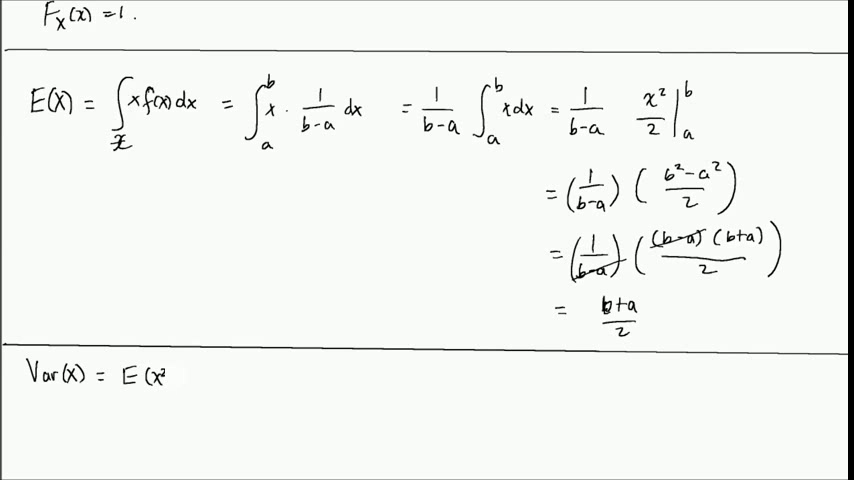 F_X(x) = 1.
E(X) = ∫_𝒳 x f(x) dx = ∫_a^b x · 1/(b-a) dx = 1/(b-a) ∫_a^b x dx = 1/(b-a) x²/2 |_a^b
= (1/(b-a)) ((b²-a²)/2)
= (1/(b-a)) ((b-a)(b+a)/2)
= (b+a)/2
Var(X) = E(x²